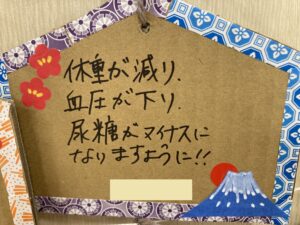 体重が減り.
血圧が下り.
尿糖がマイナスに
なりますように!!